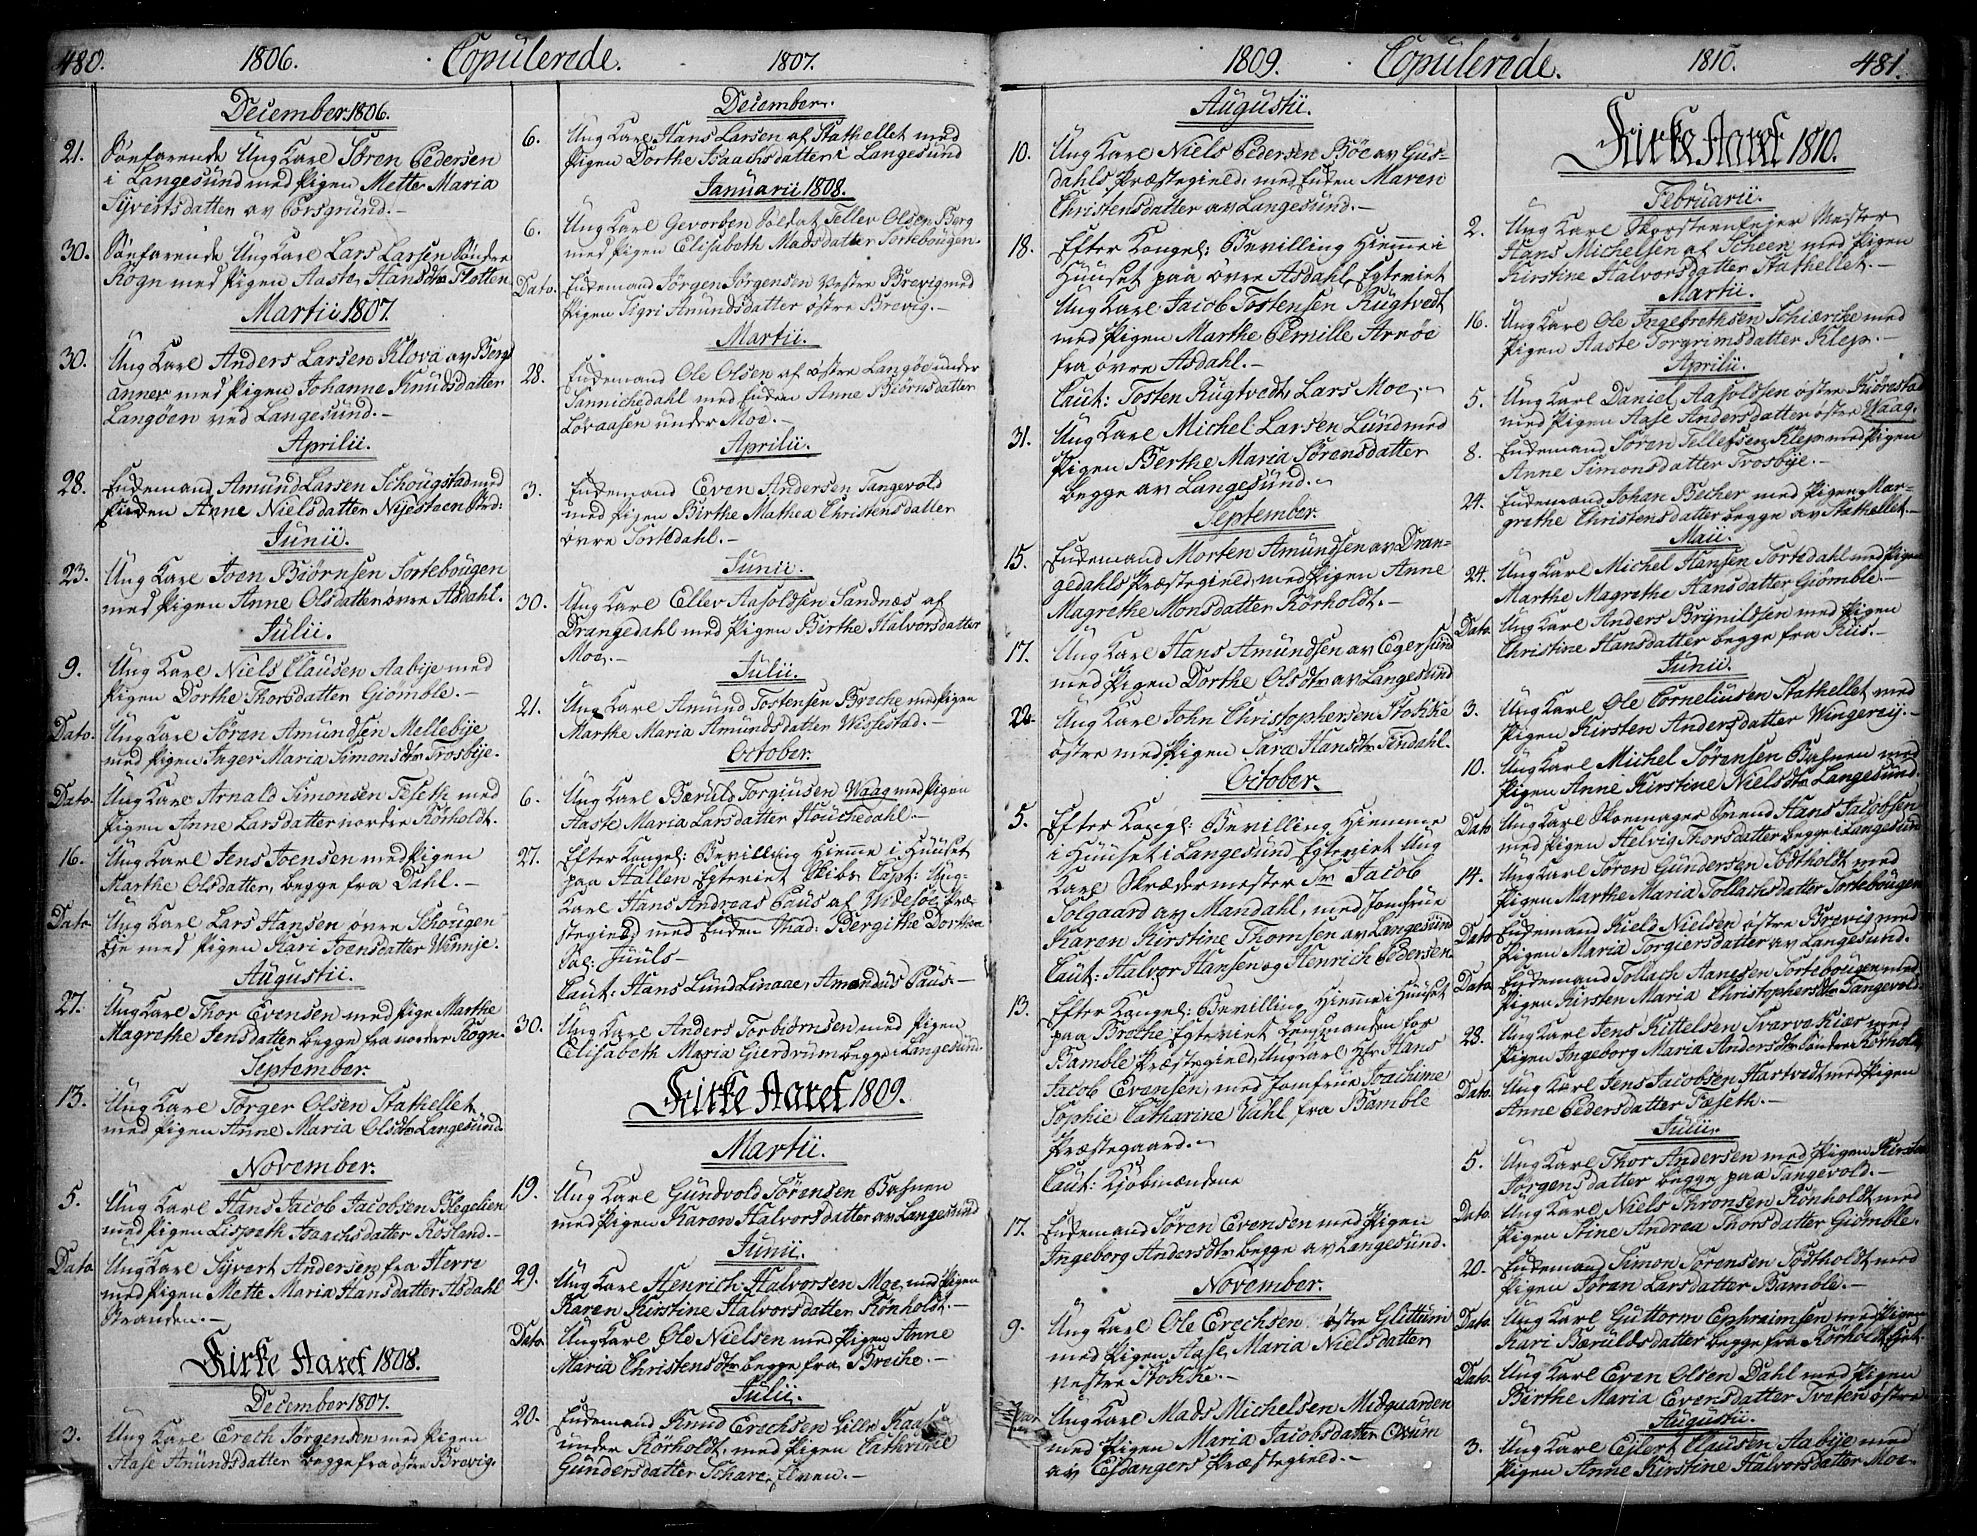 480. 1806. Copulerede. 1807.
December 1806.
21. Søefarende Ung Karl Søren Pedersen
i Langesund med Pigen Mette Maria
Syvertsdatter av Porsgrund.-
30. Søefarende Ung Karl Lars Larsen Søndre
Rogn med Pigen Aaste Hansdtr Flotten
Martii 1807.
30. Ung Karl Anders Larsen Klova av Berg
anner med Pigen Johanne Knudsdatter
Langøen ved Langesund.-
Aprilii.
28. Enkemand Amund Larsen Schougstad med
Enken Anne Nielsdatter Nyestaen Ørd:
Junii.
23. Ung Karl Joen Biørnsen Sortebougen
med Pigen Anne Olsdatter øvre Asdahl.
Julii.
9. Ung Karl Niels Clausen Aabye med
Pigen Dorthe Thorsdatter Giømble.-
Dato. Ung Karl Søren Amundsen Mellebye
med Pigen Inger Maria Simonsdtr Trosbye.
Dato. Ung Karl Arnald Simonsen Feseth med
Pigen Anne Larsdatter nordre Rørholdt.
16. Ung Karl Jens Joensen med Pigen
Marthe Olsdatter, begge fra Dahl.-
Dato. Ung Karl Lars Hansen øvre Schougen
Eje med Pigen Kari Joensdatter Winnje.
Augustii.
27. Ung Karl Thor Evensen med Pige Marthe
Magrethe Jensdatter begge fra nordre Rogn.
September.
13. Ung Karl Torger Olsen Stathellet
med Pigen Anne Maria Olsdtr Langesund.
November.
5. Ung Karl Hans Jacob Jacobsen Blegelien
med Pigen Lisbeth Isaachsdatter Rosland.-
Dato Ung Karl Syvert Andersen fra Herre
med Pigen Mette Maria Hansdatter Asdahl
Stranden.-
Kirke Aaret 1808.
December 1807.
3. Ung Karl Erech Jørgensen med Pigen
Aase Amundsdatter begge fra østre Brevig.
December.
6. Ung Karl Hans Larsen af Stathellet med
Pigen Dorthe Isaachsdatter i Langesund
Januarii 1808.
6. Ung Karl Gevorben Soldat Teller Olsen Berg
med Pigen Elisabeth Madsdatter Sortebougen.
Dato. Enkemand Jørgen Jørgensen vestre Brevig med
Pigen Sigri Amundsdatter østre Brevig.-
Martii.
28. Enkemand Ole Olsen af østre Langøe under
Sannichedahl med Enken Anne Biørnsdatter
Løvaasen under Moe.-
Aprilii.
3. Enkemand Even Andersen Tangevold
med Pigen Birthe Mathea Christensdatter
øvre Sortedahl.-
Junii.
30. Ung Karl Ellev Aasoldsen Sandnæs af
Drangedahl med Pigen Birthe Halvorsdatter
Moe.-
Julii.
21. Ung Karl Amund Tostensen Breche med Pigen
Marthe Maria Amundsdatter Wissestad.-
October.
6. Ung Karl Bærulv Torgiusen Waag med Pigen
Aaste Maria Larsdatter Houchedahl.-
27. Efter Kongel: Bevilling Hiemme i Huuset
paa Hallen Egteviet Skibs Capt: Ung-
Karl Hans Andreas Paus af Widesøe Præ-
stegield med Enken Mad: Bergithe Dorthea
Sal: Juuls-
Caut: Hans Lund Linaae, Amandus Paus-
30. Ung Karl Anders Torbiørnsen med Pigen
Elisabeth Maria Gierdrum begge i Langesund.
Kirke Aaret 1809.
Martii.
19. Ung Karl Gundvold Sørensen Basnen
med Pigen Karen Halvorsdatter av Langesund
Junii.
29. Ung Karl Henrich Halvorsen Moe, med Pigen
Karen Kirstine Halvorsdatter Rønholdt.-
Dato. Ung Karl Ole Nielsen med Pigen Anne
Maria Christensdtr begge fra Breche.-
Julii.
20. Enkemand Knud Erechsen Lille Kaasa
under Rørholdt, med Pigen Cathrine
Gundersdatter Schare, Elven.-
1809. Copulerede. 1810. 481.
Augustii.
10. Ung Karl Niels Pedersen Bøe av Gus-
dahls Præstegield, med Enken Maren
Christensdatter av Langesund.-
18. Efter Kongel: Bevilling Hiemme i
Huuset paa øvre Asdahl, Egteviet
Ung Karl Jacob Tostensen Rugtvedt
med Pigen Marthe Pernille Arrøe
fra øvre Asdahl.-
Caut: Tosten Rugtvedt, Lars Moe.-
31. Ung Karl Michel Larsen Lund med
Pigen Berthe Maria Sørensdatter
begge av Langesund.-
September.
15. Enkemand Morten Amundsen av Dran-
gedahls Præstegield, med Pigen Anne
Magrethe Monsdatter Rørholdt.-
17. Ung Karl Hans Amundsen av Egersund
med Pigen Dorthe Olsdtr av Langesund
22. Ung Karl John Christophersen Stokke
østre med Pigen Sara Hansdtr Findahl.
October.
5. Efter Kongl: Bevilling Hiemme
i Huuset i Langesund Egteviet Ung
Karl Skrædermester Sr Jacob
Solgaard av Mandahl, med Jomfrue
Karen Kirstine Thomsen av Langesund
Caut: Halvor Hansen og Henrich Pedersen
13. Efter Kongel: Bevilling, Hiemme i Huuset
paa Brethe Egteviet Lensmanden for
Bamble Præstegield, Ung Karl Sr Hans
Jacob Evensen, med Jomfrue Joachime
Sophie Catharine Dahl fra Bamble
Præstegaard.-
Caut: Kjøbmændene
17. Enkemand Søren Evensen med Pigen
Ingeborg Andersdtr begge av Langesund.
November.
9. Ung Karl Ole Erechsen østre Glittum
med Pigen Aase Maria Nielsdatter
vestre Stokke.-
Ung Karl Mads Michelsen Midguarden
med Pigen Maria Jacobsdatter Oxum
av Esdangers Præstegield.-
Kirke Aaret 1810.
Februarii.
2. Ung Karl Skorsteenfejer Mester
Hans Michelsen af Scheen med Pigen
Kirstine Halvorsdatter Stathellet.-
Martii.
16. Ung Karl Ole Ingebrethsen Schiærche med
Pigen Aaste Torgrimsdatter Klep.-
Aprilii.
5. Ung Karl Daniel Aasoldsen østre Kiørestad
med Pigen Aase Andersdatter østre Waag.
8. Enkemand Søren Tellefsen Klep med Pigen
Anne Simonsdatter Trosbye.-
24. Enkemand Johan Becher med Pigen Mar-
grethe Christensdatter begge av Stathellet.-
Maii.
24. Ung Karl Michel Hansen Sortedahl med Pigen
Marthe Magrethe Hansdatter Giømble.-
Dato. Ung Karl Anders Brynildsen med Pigen
Christine Hansdatter begge fra Riis.-
Junii.
3. Ung Karl Ole Corneliusen Stathellet med
Pigen Kirsten Andersdatter Wingerej.-
10. Ung Karl Michel Sørensen Basnen med
Pigen Anne Kirstine Nielsdtr Langesund.
Dato. Ung Karl Skomager Svend Hans Jacobsen
med Pigen Helvig Thorsdatter begge i Langesund
14. Ung Karl Søren Gundersen Tostholdt med
Pigen Marthe Maria Tollachsdatter Sortebougen
Dato Enkemand Kield Nielsen østre Brevig med
Pigen Maria Torgiersdatter av Langesund.
Dato. Enkemand Tollach Hansen Sortebougen med
Pigen Kirsten Maria Christophersdtr Tangevold.
28. Ung Karl Jens Kittelsen Svarvekiær med
Pigen Ingeborg Maria Andersdtr søndre Rørholdt
Dato. Ung Karl Jens Jacobsen Hartvedt med Pigen
Anne Pedersdatter Fæseth.-
Julii.
5. Ung Karl Thor Andersen med Pigen Kirsten
Jørgensdatter begge paa Tangevold.-
Dato. Ung Karl Niels Thronsen Rønholdt med
Pigen Stine Andrea Thorsdatter Giømble.
20. Enkemand Simon Sørensen Tostholdt med
Pigen Jøran Larsdatter Bamble.-
Dato. Ung Karl Guttorm Ephraimsen med Pigen
Kari Bærulvsdatter begge fra Rørholdt Fiet.
Dato. Ung Karl Even Olsen Dahl med Pigen
Birthe Maria Evensdatter Tveten østre
Augustii.
3. Ung Karl Ejlert Clausen Aabye med
Pigen Anne Kirstine Halvorsdatter Moe.